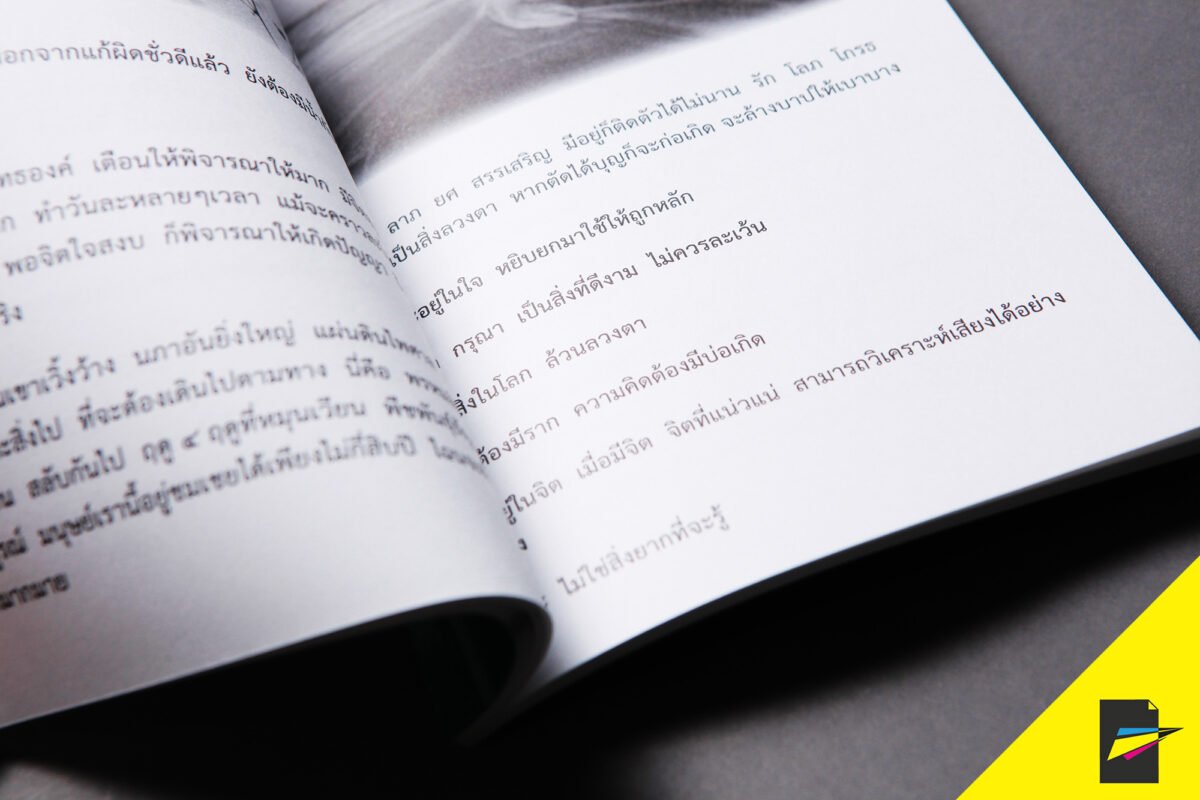 อกจากแก้ผิดชั่วดีแล้ว ยังต้องมีน้ำ
ทธองค์ เตือนให้พิจารณาให้มาก
ทำวันละหลายๆเวลา แม้จะคราว
พอจิตใจสงบ ก็พิจารณาให้เกิดปัญญา
ริง
นเขาเวิ้งว้าง นภาอันยิ่งใหญ่ แผ่นดินไพศาล
ะสิ่งไป ที่จะต้องเดินไปตามทาง นี่คือ
น สลับกันไป ฤดู ๔ ฤดูที่หมุนเวียน พืชพันธุ์
มนุษย์เรานี้อยู่ชมเชยได้เพียงไม่กี่สิบปี
มากมาย
ลาภ ยศ สรรเสริญ มีอยู่ก็ติดตัวได้ไม่นาน รัก โลภ โกรธ
เป็นสิ่งลวงตา หากตัดได้บุญก็จะก่อเกิด จะล้างบาปให้เบาบาง
อยู่ในใจ หยิบยกมาใช้ให้ถูกหลัก
กรุณา เป็นสิ่งที่ดีงาม ไม่ควรละเว้น
สิ่งในโลก ล้วนลวงตา
ต้องมีราก ความคิดต้องมีบ่อเกิด
ยู่ในจิต เมื่อมีจิต จิตที่แน่วแน่ สามารถวิเคราะห์เสียงได้อย่าง
ง
ไม่ใช่สิ่งยากที่จะรู้